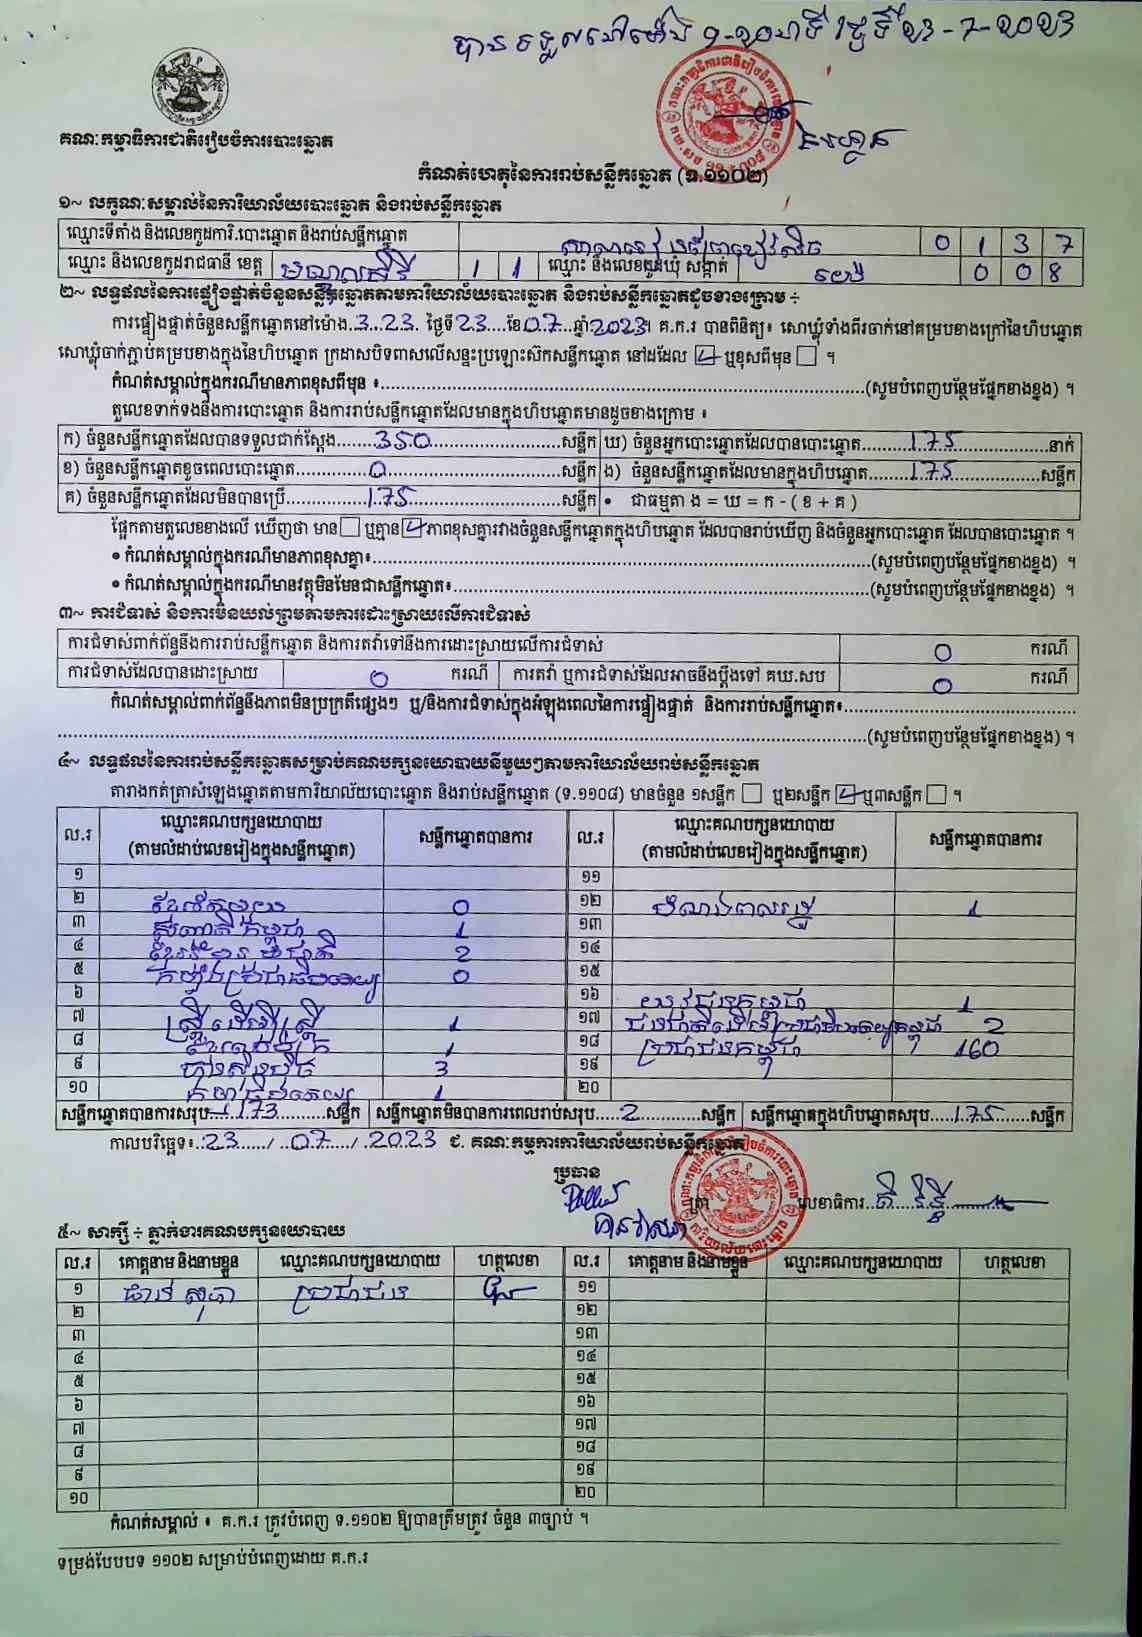 បានទទួលនៅម៉ោង 9-20នាទី ថ្ងៃទី 23-7-2023
គណៈកម្មាធិការជាតិរៀបចំការបោះឆ្នោត
កំណត់ហេតុនៃការរាប់សន្លឹកឆ្នោត (ទ.១១០២)
១~ លក្ខណៈសម្គាល់នៃការិយាល័យបោះឆ្នោត និងរាប់សន្លឹកឆ្នោត
ឈ្មោះទីតាំង និងលេខកូដការិ.បោះឆ្នោត និងរាប់សន្លឹកឆ្នោត 0 1 3 7
ឈ្មោះ និងលេខកូដរាជធានី ខេត្ត មណ្ឌលគិរី 1 1 ឈ្មោះ និងលេខកូដឃុំ សង្កាត់ 0 0 8
២~ លទ្ធផលនៃការផ្ទៀងផ្ទាត់ចំនួនសន្លឹកឆ្នោតតាមការិយាល័យបោះឆ្នោត និងរាប់សន្លឹកឆ្នោតដូចខាងក្រោម ÷
ការផ្ទៀងផ្ទាត់ចំនួនសន្លឹកឆ្នោតនៅម៉ោង.3..23. ថ្ងៃទី23....ខែ07...ឆ្នាំ2023។ គ.ក.រ បានពិនិត្យ៖ សោឃ្លុំទាំងពីរចាក់នៅគម្របខាងក្រៅនៃហិបឆ្នោត
សោឃ្លុំចាក់ភ្ជាប់គម្របខាងក្នុងនៃហិបឆ្នោត ក្រដាសបិទពាសលើសន្ទះប្រឡោះស៊កសន្លឹកឆ្នោត នៅដដែល ☑ ឬខុសពីមុន ☐ ។
កំណត់សម្គាល់ក្នុងករណីមានភាពខុសពីមុន ៖........(សូមបំពេញបន្ថែមផ្នែកខាងខ្នង) ។
តួលេខទាក់ទងនឹងការបោះឆ្នោត និងការរាប់សន្លឹកឆ្នោតដែលមានក្នុងហិបឆ្នោតមានដូចខាងក្រោម ៖
ក) ចំនួនសន្លឹកឆ្នោតដែលបានទទួលជាក់ស្តែង........350........សន្លឹក ឃ) ចំនួនអ្នកបោះឆ្នោតដែលបានបោះឆ្នោត........175........នាក់
ខ) ចំនួនសន្លឹកឆ្នោតខូចពេលបោះឆ្នោត........0........សន្លឹក ង) ចំនួនសន្លឹកឆ្នោតដែលមានក្នុងហិបឆ្នោត........175........សន្លឹក
គ) ចំនួនសន្លឹកឆ្នោតដែលមិនបានប្រើ........175........សន្លឹក • ជាធម្មតា ង = ឃ = ក - ( ខ + គ )
ផ្អែកតាមតួលេខខាងលើ ឃើញថា មាន☐ ឬគ្មាន☑ភាពខុសគ្នារវាងចំនួនសន្លឹកឆ្នោតក្នុងហិបឆ្នោត ដែលបានរាប់ឃើញ និងចំនួនអ្នកបោះឆ្នោត ដែលបានបោះឆ្នោត ។
• កំណត់សម្គាល់ក្នុងករណីមានភាពខុសគ្នា៖........(សូមបំពេញបន្ថែមផ្នែកខាងខ្នង) ។
• កំណត់សម្គាល់ក្នុងករណីមានវត្ថុមិនមែនជាសន្លឹកឆ្នោត៖........(សូមបំពេញបន្ថែមផ្នែកខាងខ្នង) ។
៣~ ការជំទាស់ និងការមិនយល់ព្រមតាមការដោះស្រាយលើការជំទាស់
ការជំទាស់ពាក់ព័ន្ធនឹងការរាប់សន្លឹកឆ្នោត និងការតវ៉ាទៅនឹងការដោះស្រាយលើការជំទាស់ 0 ករណី
ការជំទាស់ដែលបានដោះស្រាយ 0 ករណី ការតវ៉ា ឬការជំទាស់ដែលអាចនឹងប្តឹងទៅ គឃ.សប 0 ករណី
កំណត់សម្គាល់ពាក់ព័ន្ធនឹងភាពមិនប្រក្រតីផ្សេងៗ ឬ/និងការជំទាស់ក្នុងអំឡុងពេលនៃការផ្ទៀងផ្ទាត់ និងការរាប់សន្លឹកឆ្នោត៖........
........(សូមបំពេញបន្ថែមផ្នែកខាងខ្នង) ។
៤~ លទ្ធផលនៃការរាប់សន្លឹកឆ្នោតសម្រាប់គណបក្សនយោបាយនីមួយៗតាមការិយាល័យរាប់សន្លឹកឆ្នោត
តារាងកត់ត្រាសំឡេងឆ្នោតតាមការិយាល័យបោះឆ្នោត និងរាប់សន្លឹកឆ្នោត (ទ.១១០៨) មានចំនួន ១សន្លឹក ☐ ឬ២សន្លឹក ☑ឬ៣សន្លឹក ☐ ។
ល.រ ឈ្មោះគណបក្សនយោបាយ (តាមលំដាប់លេខរៀងក្នុងសន្លឹកឆ្នោត) សន្លឹកឆ្នោតបានការ ល.រ ឈ្មោះគណបក្សនយោបាយ (តាមលំដាប់លេខរៀងក្នុងសន្លឹកឆ្នោត) សន្លឹកឆ្នោតបានការ
១ ១១
២ ខ្មែរតែមួយ 0 ១២ តំណាងពលរដ្ឋ 1
៣ 1 ១៣
៤ 2 ១៤
៥ 0 ១៥
៦ ១៦ យុវជនកម្ពុជា 1
៧ ស្ត្រីដើម្បីស្ត្រី 1 ១៧ ជនជាតិដើមប្រជាធិបតេយ្យកម្ពុជា 2
៨ 1 ១៨ ប្រជាជនកម្ពុជា 160
៩ ហ្វ៊ុនស៊ិនប៉ិច 3 ១៩
១០ 1 ២០
សន្លឹកឆ្នោតបានការសរុប 173........សន្លឹក សន្លឹកឆ្នោតមិនបានការពេលរាប់សរុប....2........សន្លឹក សន្លឹកឆ្នោតក្នុងហិបឆ្នោតសរុប....175........សន្លឹក
កាលបរិច្ឆេទ៖..23...../..07...../..2023 ជ. គណៈកម្មការការិយាល័យរាប់សន្លឹកឆ្នោត
ប្រធាន ត្រា លេខាធិការ
៥~ សាក្សី ÷ ភ្នាក់ងារគណបក្សនយោបាយ
ល.រ គោត្តនាម និងនាមខ្លួន ឈ្មោះគណបក្សនយោបាយ ហត្ថលេខា ល.រ គោត្តនាម និងនាមខ្លួន ឈ្មោះគណបក្សនយោបាយ ហត្ថលេខា
១ ប្រជាជន ១១
២ ១២
៣ ១៣
៤ ១៤
៥ ១៥
៦ ១៦
៧ ១៧
៨ ១៨
៩ ១៩
១០ ២០
កំណត់សម្គាល់ ៖ គ.ក.រ ត្រូវបំពេញ ទ.១១០២ ឱ្យបានត្រឹមត្រូវ ចំនួន ៣ច្បាប់ ។
ទម្រង់បែបបទ ១១០២ សម្រាប់បំពេញដោយ គ.ក.រ